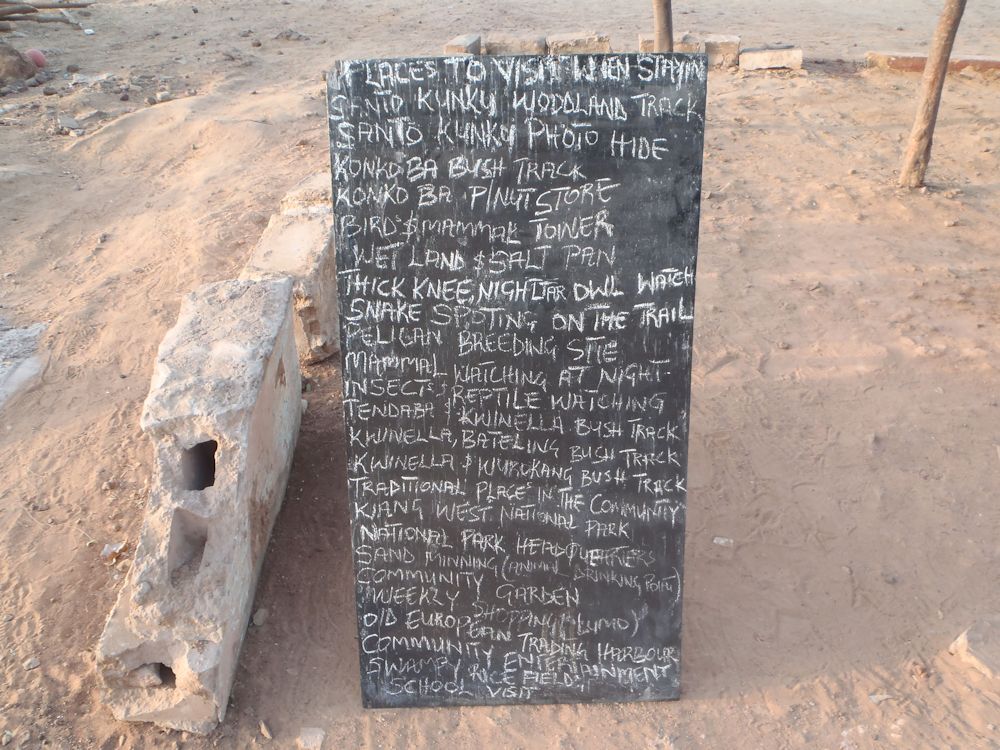 PLACES TO VISIT WHEN STAYIN
SANTO KUNKU WOODLAND TRACK
SANTO KUNKU PHOTO HIDE
KONKO BA BUSH TRACK
KONKO BA PINUT STORE
BIRD'S $ MAMMAL TOINER
WET LAND $ SALT PAN
THICK KNEE, NIGHTJAR OWL WATCH
SNAKE SPOTING ON THE TRAIL
PELICAN BREEDING SITE
MAMMAL WATCHING AT NIGHT
INSECT $ REPTILE WATCHING
TENDABA $ KWINELLA BUSH TRACK
KWINELLA, BATELING BUSH TRACK
KWINELLA $ WURUKANG BUSH TRACK
TRADITIONAL PLACES IN THE COMMUNITY
KIANG WEST NATIONAL PARK
NATIONAL PARK HEADQUEARTERS
SAND MINNING (ANIMAL DRINKING POINT)
COMMUNITY GARDEN
WEEKLY SHOPPING "LUMO"
OLD EUROPEAN TRADING HARBOUR
COMMUNITY ENTERTAINMENT
SWAMPY RICE FIELDS
SCHOOL VISIT